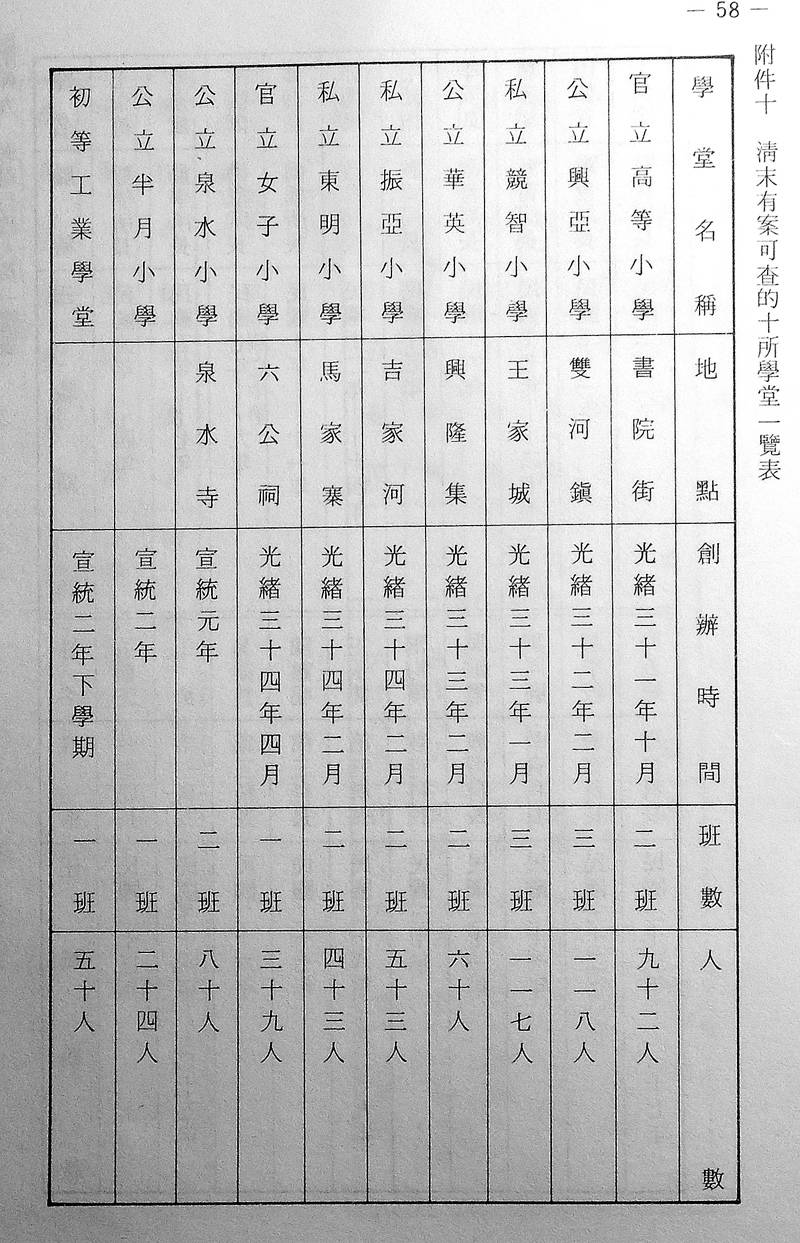 — 58 —
附件十　清末有案可查的十所學堂一覽表
學堂名稱　地點　創辦時間　班數　人數
官立高等小學　書院街　光緒三十一年十月　二班　九十二人
公立興亞小學　雙河鎮　光緒三十二年二月　三班　一一八人
私立競智小學　王家城　光緒三十三年一月　三班　一一七人
公立華英小學　興隆集　光緒三十三年二月　二班　六十人
私立振亞小學　吉家河　光緒三十四年二月　二班　五十三人
私立東明小學　馬家寨　光緒三十四年二月　二班　四十三人
官立女子小學　六公祠　光緒三十四年四月　一班　三十九人
公立泉水小學　泉水寺　宣統元年　二班　八十人
公立半月小學　宣統二年　一班　二十四人
初等工業學堂　宣統二年下學期　一班　五十人